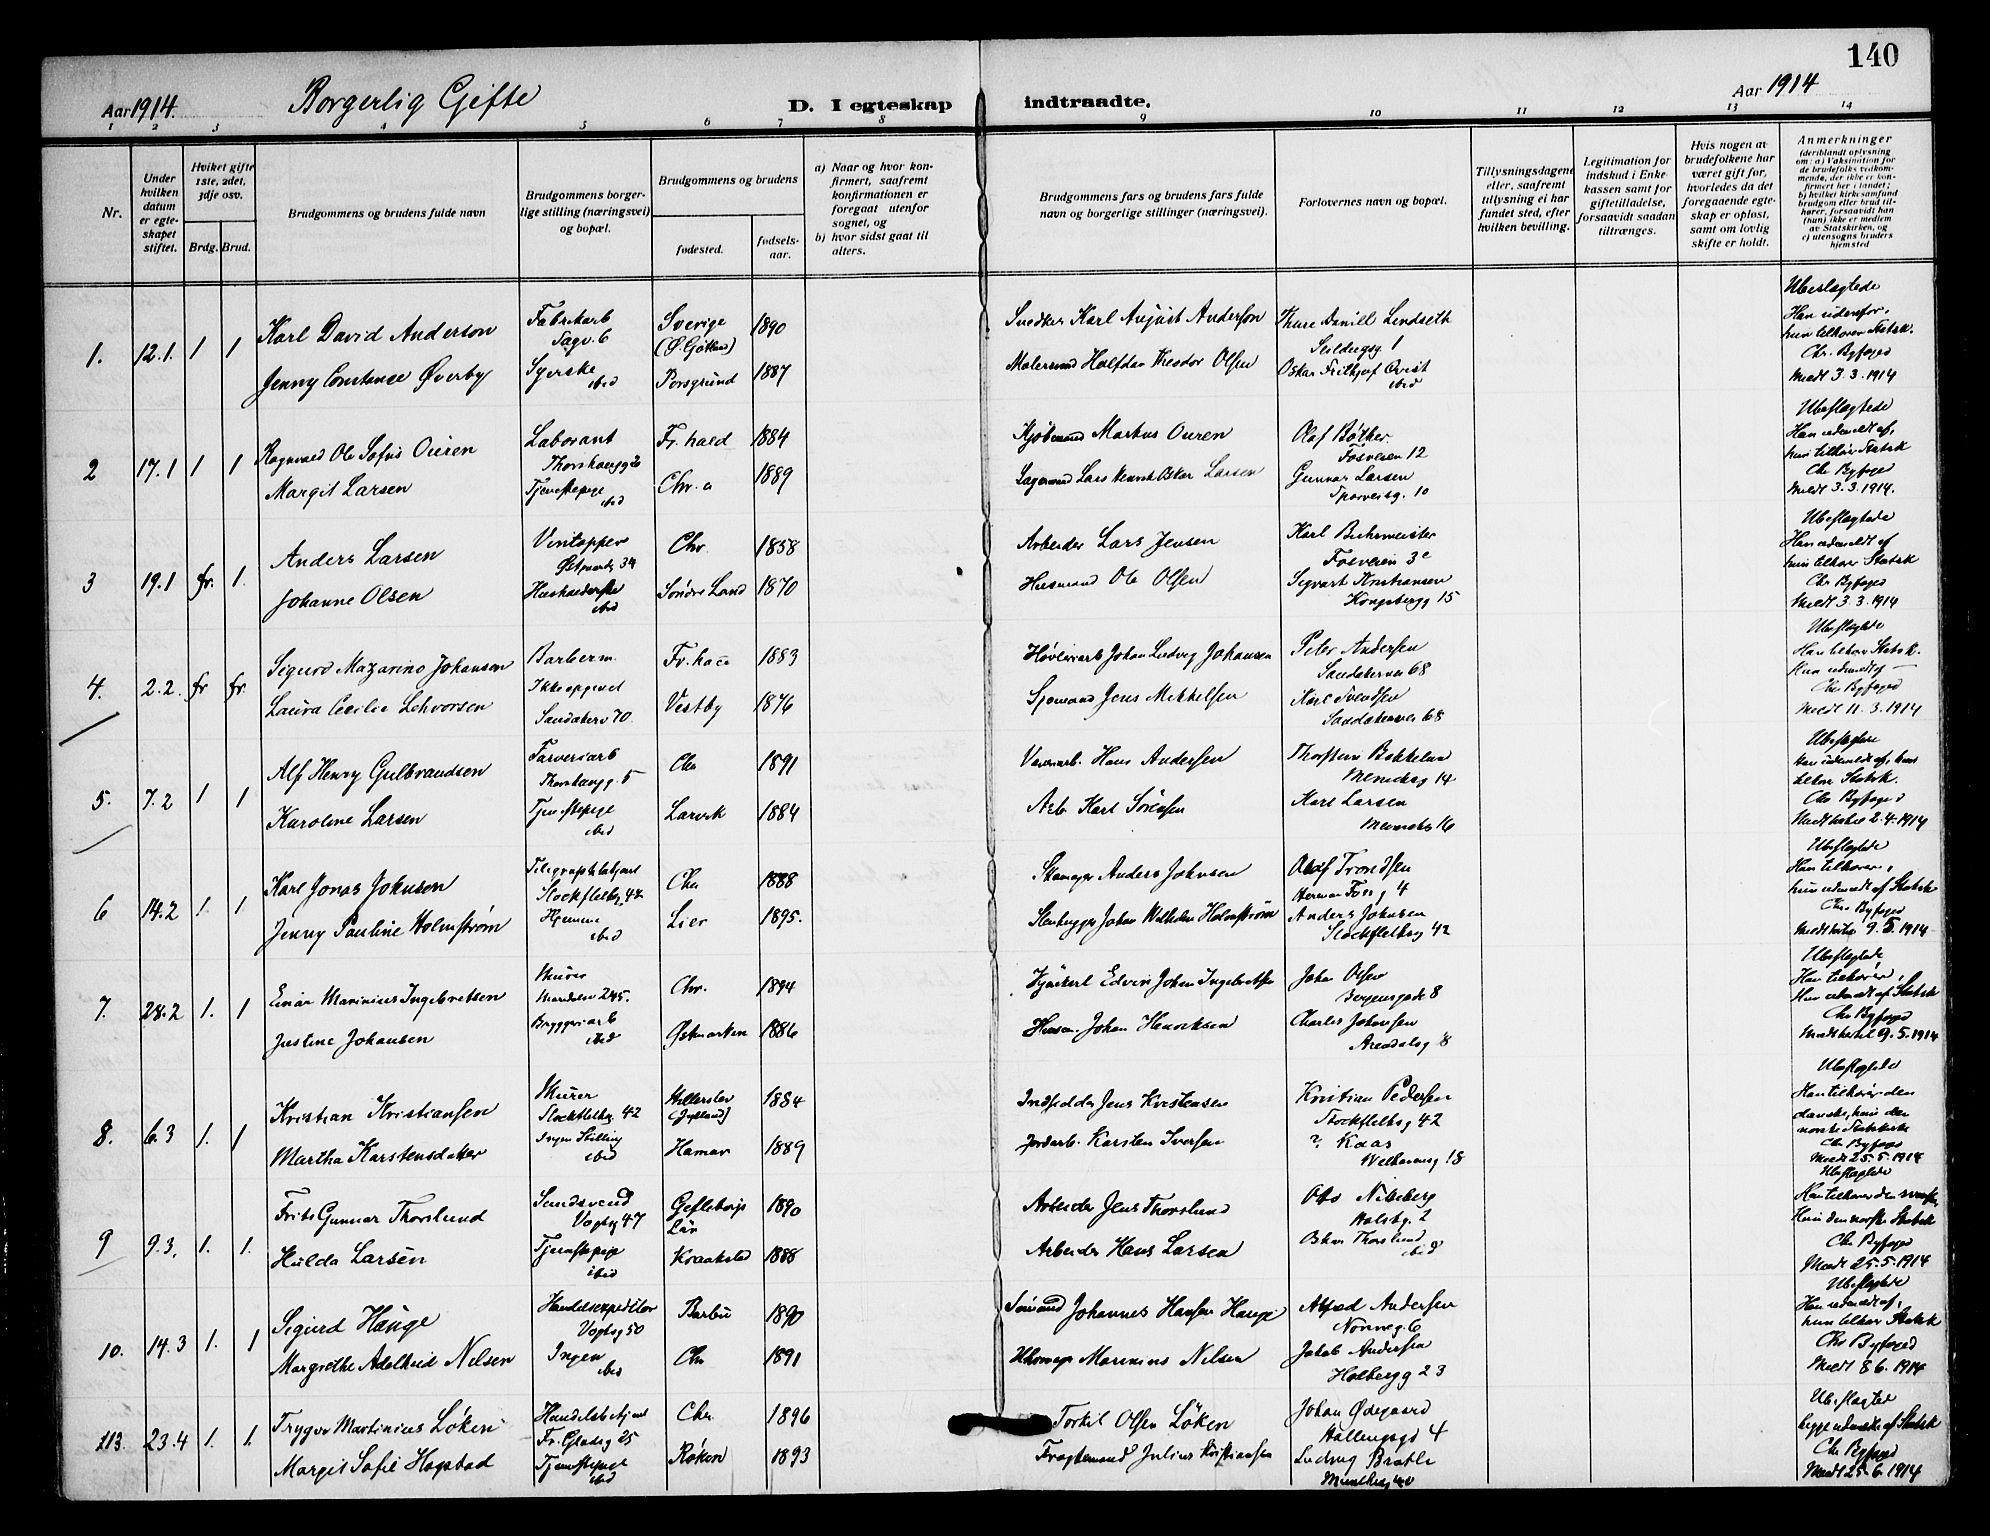 140
Aar 1914. Borgerlig Gifte D. I egteskap indtraadte. Aar 1914
1 2 3 4 5 6 7 8 9 10 11 12 13 14
Nr.
Under hvilken datum er egteskapet stiftet.
Hviket gifte 1ste, 2det, 3dje osv.
Brdg. Brud.
Brudgommens og brudens fulde navn
Brudgommens borgerlige stilling (næringsvei) og bopæl.
Brudgommens og brudens
fødested. fødselsaar.
a) Naar og hvor konfirmert, saafremt konfirmationen er foregaat utenfor sognet, og
b) hvor sidst gaat til alters.
Brudgommens fars og brudens fars fulde navn og borgerlige stillinger (næringsvei).
Forlovernes navn og bopæl.
Tillysningsdagene eller, saafremt tillysning ei har fundet sted, efter hvilken bevilling.
Legitimation for indskud i Enkekassen samt for giftetilladelse, forsaavidt saadan tiltrænges.
Hvis nogen av brudefolkene har været gift for, hvorledes da det foregaaende egteskap er opløst, samt om lovlig skifte er holdt.
Anmerkninger
(deriblandt oplysning om: a) Vaksination for de brudefolks vedkommende, der ikke er konfirmert her i landet; b) hvilket kirkesamfund brudgom eller brud tilhører, forsaavidt han (hun) ikke er medlem av Statskirken, og c) utensogns bruders hjemsted
1. 12.1. 1 1
Karl David Anderson
Jenny Constance Øverby
Fabrikarb
Sagv. 6
Syerske
ibid
Sverige
(Ø. Gøtland) 1890
Porsgrund 1887
Snedker Karl August Anderson
Malersvend Halfdan Theodor Olsen
Thure Daniel Lindseth
Seildugsg. 1
Oskar Frithjof Qvist
ibid
Ubeslægtede
Han udenfor,
hun tilhører Statsk.
Chr. Byfoged
Medt 3.3.1914
2 17.1 1 1
Ragnvald Ole Sofus Ouren
Margit Larsen
Laborant
Tjenestepige
ibid
Fr. hald 1884
Chr. a 1889
Kjøbmand Markus Ouren
Lagermand Lars Henrik Oskar Larsen
Olaf Bøther
Fosveien 12
Gunnar Larsen
Sporveisg. 10
Ubeslægtede
Han udmeldt af,
hun tilhør Statsk
Chr Byfoged
Medt 3.3.1914.
3 19.1 fr. 1.
Anders Larsen
Johanne Olsen
Vintapper
Husholderske
ibid
Chr. 1858
Søndre Land 1870
Arbeider Lars Jensen
Husmand Ole Olsen
Karl Buhrmeister
Fosveien 3c
Sigvart Kristiansen
Kongsbergg 15
Ubeslægtede
Han udmeldt af
hun tilhører Statsk
Chr Byfoged
Medt 3.3.1914
4. 2.2. fr fr.
Sigurd Mazarino Johansen
Laura Cecilie Lehvorsen
Barberm.
Ikke opgivet
Sandakerv 70.
Fr. hald 1883
Vestby 1876
Høvleriarb Johan Ludvig Johansen
Sjømand Jens Mikkelsen
Peter Andersen
Sandakervei 68
Karl Svendsen
Sandakervei 68
Ubeslægtede
Han tilhører Statsk.
Hun udmeldt af
Chr Byfoged
Medt 11.3.1914
5. 7.2 1 1
Alf Henry Gulbrandsen
Karoline Larsen
Farveriarb
Thorshaugg 5
Tjenestepige
ibid
Chr 1891
Larvik 1884
Hans Andersen
Arb Karl Sørensen
Thorstein Bakkelan
14
Karl Larsen
16
Ubeslægtede
Han udmeldt af, hun
tilhør Statsk.
Chr Byfoged
2.4.1914
6 14.2 1. 1
Karl Jonas Johnson
Jenny Pauline Holmstrøm
Stockfletsg. 42
Hjemme
ibid
Chr 1888
Lier 1895.
Skomager Anders Johnsen
Stenhugger Johan Wilhelm Holmstrøm
Olaf Trondsen
Herman Fossg 4
Anders Johnsen
Stockfletsg 42
Ubeslægtede
Han tilhører,
hun udmeldt af Statsk
Chr Byfoged
9.5.1914
7. 28.2 1. 1
Einar Marinius Ingebretsen
Justine Johansen
Murer
Maridalsv 245.
Bryggeriarb
ibid
Chr. 1894
Østmarken 1886
Edvin Johan Ingebretsen
Johan Henriksen
Johan Olsen
Bergensgade 8
Charles Johansen
Arendalsg 8
Ubeslægtede
Han tilhører,
Hun udmeldt af Statsk
Chr Byfoged
9.5.1914
8. 6.3 1. 1
Kristian Kristiansen
Martha Karstensdatter
Murer
Stockfletsg. 42
Ingen Stilling
ibid
Hellerslev
(Jylland) 1884
Hamar 1889
Indsidder Jens Kristensen
Jordarb. Karsten Iversen
Kristian Pedersen
Stockfletsg 42
? Kaas
Welhavensg 18
Ubeslægtede
Han tilhører den
danske, hun den
norske Statskirke
Chr Byfoged
Medt 25.5.1914
9 9.3. 1. 1.
Frits Gunnar Thorslund
Hulda Larsen
Vogtsg 47
Tjenestepige
ibid
Gefleborgs
Län 1890
Kraakstad 1888
Arbeider Jens Thorslund
Arbeider Hans Larsen
Otto Nibeberg
Holsts. 2
Oskar Thorslund
ibid
Ubeslægtede
Han tilhører den svenske,
Hun den norske Statsk
Chr Byfoged
Medt 25.5.1914
10. 14.3 1. 1
Sigurd Hauge
Margrethe Adelheid Nilsen
Handelsexpeditør
Vogtsg 50
Ingen
ibid
Barbu 1890
Chr 1891
Sømand Johannes Hansen Hauge
Marinius Nilsen
Alfred Andersen
Norneg. 6
Jakob Andersen
Holbergg 23
Ubeslægtede
Han udmeldt af,
hun tilhør Statsk
Chr Byfoged
Medt 8.6.1914
113. 23.4 1. 1.
Trygve Martinius Løken
Margit Sofie Hogstad
Handelsbetjent
Fr. Gladsg 25
Tjenestepige
ibid
Chr. 1896
Røken 1893
Torkil Olsen Løken
Fragtemand Julius Kristiansen
Johan Ødegaard
Hallingsgd 4
Ludvig Bratli
Ubeslægted
begge udmeldt af Statsk
Chr Byfoged
Medt 25.6.1914